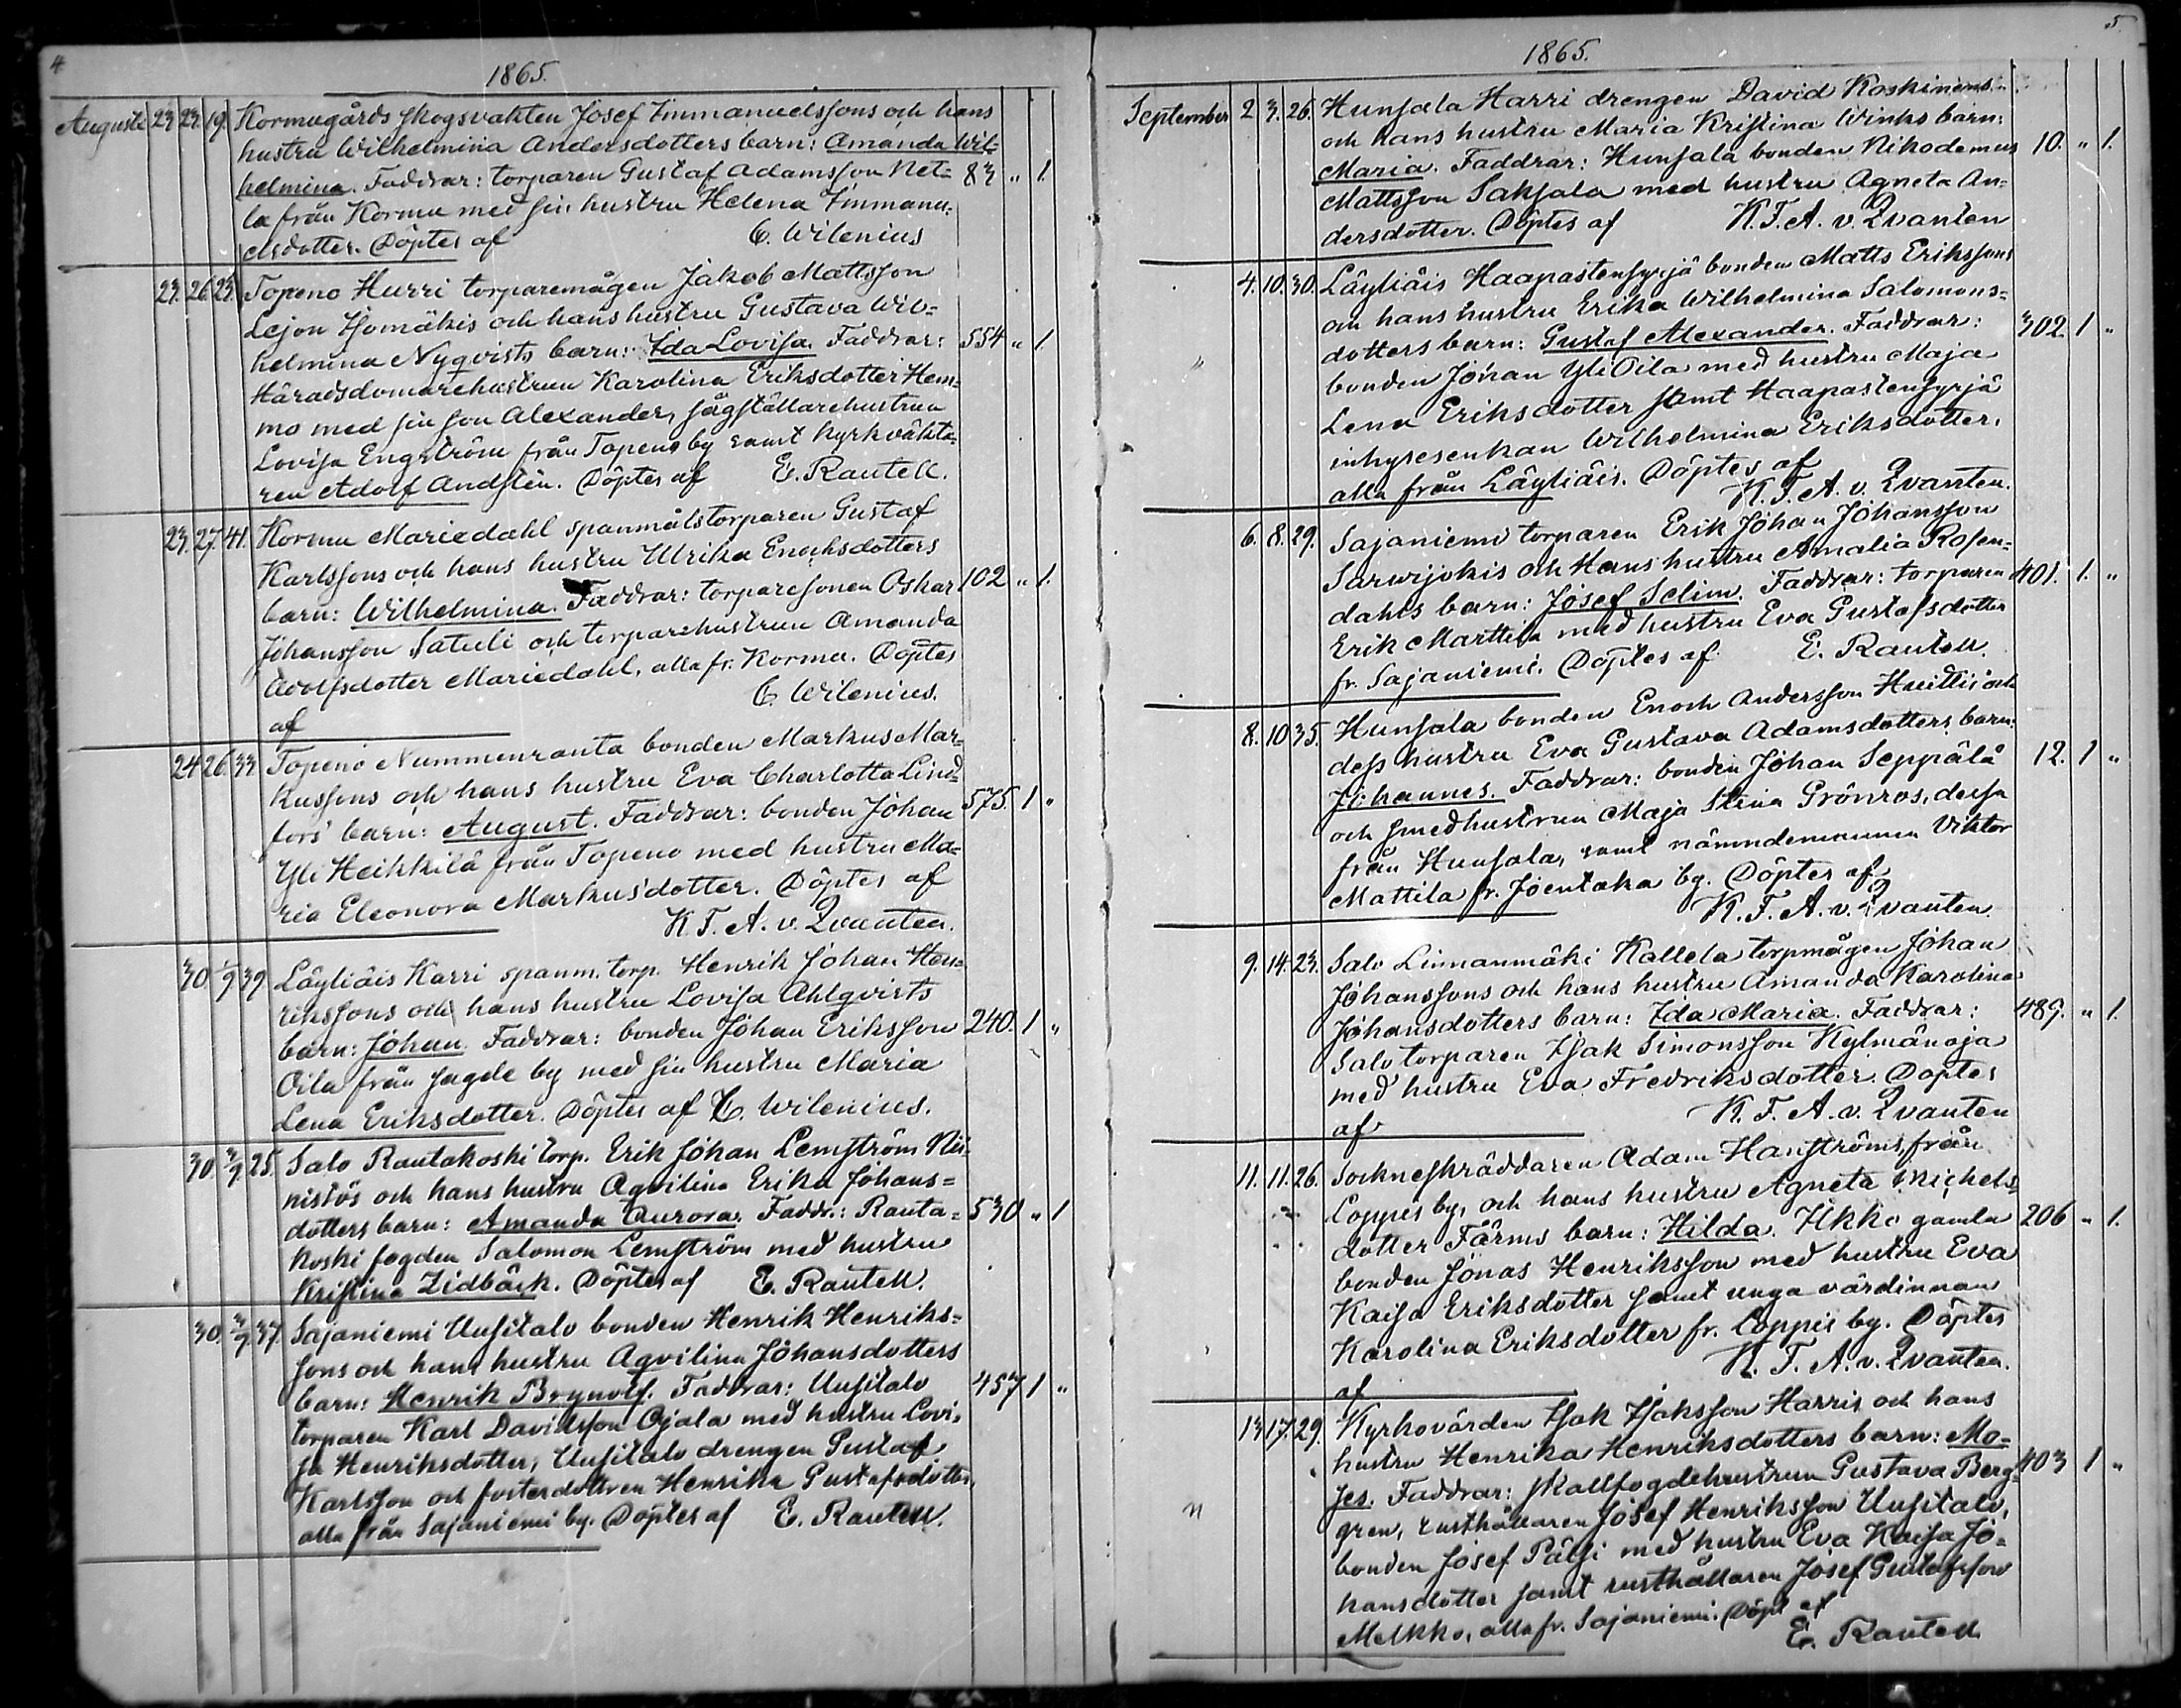 4
1865.
Augusti 23. 23. 19. Kormugårds skogsvakten Josef Immanuelssons och hans
hustru Wilhelmina Andersdotters barn: Amanda Wil=
helmina. Faddrar: torparen Gustaf Adamsson Net= 83 " 1.
la från Kormu med sin hustru Helena Immanu=
elsdotter. Döptes af C. Wilenius
23. 26. 23. Topeno Hurri torparemågen Jakob Mattsson
Lejon Isomäkis och hans hustru Gustava Wil=
helmina Nyqvists barn: Ida Lovisa. Faddrar: 554 " 1.
Häradsdomarehustrun Karolina Eriksdotter Hem=
mo med sin son Alexander, sågställarehustrun
Lovisa Engström från Topeno by samt kyrkväkta=
ren Adolf Andstén. Döptes af E. Rautell.
23. 27. 41. Kormu Mariedahl spanmålstorparen Gustaf
Karlssons och hans hustru Ulrika Enochsdotters
barn: Wilhelmina. Faddrar: torparesonen Oskar 102 " 1.
Johansson Satuli och torparehustrun Amanda
Adolfsdotter Mariedahl, alla fr. Kormu. Döptes
af C. Wilenius.
24 26. 33 Topeno Nummenranta bonden Markus Mar=
kussons och hans hustru Eva Charlotta Lind=
fors' barn: August. Faddrar: bonden Johan 575. 1 "
Yli Heikkilä från Topeno med hustru Ma=
ria Eleonora Markusdotter. Döptes af
K. F. A. v. Qvanten.
30. 1/9 39 Läyliäis Karri spanm. torp. Henrik Johan Hen=
rikssons och hans hustru Lovisa Ahlqvists
barn: Johan. Faddrar: bonden Johan Eriksson 240. 1 "
Oila från sagde by med sin hustru Maria
Lena Eriksdotter. Döptes af C. Wilenius.
30. 3/9. 25. Salo Rautakoski torp. Erik Johan Lemström Nii=
nistös och hans hustru Aqvilina Erika Johans=
dotters barn: Amanda Aurora. Faddr.: Rauta= 530 " 1
koski fogden Salomon Lemström med hustru
Kristina Lidbäck. Döptes af E. Rautell.
30. 3/9. 37. Sajaniemi Uusitalo bonden Henrik Henriks=
sons och hans hustru Aqvilina Johansdotters
barn: Henrik Brynolf. Faddrar: Uusitalo 457 1 "
torparen Karl Davidsson Ojala med hustru Lovi=
sa Henriksdotter, Uusitalo drengen Gustaf
Karlsson och fosterdottren Henrika Gustafsdotter,
alla från Sajaniemi by. Döptes af E. Rautell.
5.
1865.
September 2 3. 26. Hunsala Harri drengen David Koskinens
och hans hustru Maria Kristina Winks barn:
Maria. Faddrar: Hunsala bonden Nikodemus 10. " 1.
Mattsson Saksala med hustru Agneta An=
dersdotter. Döptes af K. F. A. v. Qvanten
4. 10. 30. Läyliäis Haapastensyrjä bonden Matts Erikssons
och hans hustru Erika Wilhelmina Salomons=
dotters barn: Gustaf Alexander. Faddrar: 302. 1 "
bonden Johan Yli Oila med hustru Maja
Lena Eriksdotter samt Haapastensyrjä
inhyseseukan Wilhelmina Eriksdotter,
alla från Läyliäis. Döptes af
K. F. A. v. Qvanten.
6. 8. 29. Sajaniemi torparen Erik Johan Johansson
Sarwijokis och Hans hustru Amalia Rosen=
dahls barn: Josef Selim. Faddrar: torparen 401. 1. "
Erik Marttila med hustru Eva Gustafsdotter
fr. Sajaniemi. Döptes af E. Rautell.
8. 10 35. Hunsala bonden Enoch Andersson Huittis och
dess hustru Eva Gustava Adamsdotters barn:
Johannes. Faddrar: bonden Johan Seppälä 12. 1 "
och smedhustrun Maja Stina Grönros, dessa
från Hunsala, samt nämndemannen Viktor
Mattila fr. Joentaka by. Döptes af
K. F. A. v. Qvanten.
9. 14. 23. Salo Linnanmäki Kallela torpmågen Johan
Johanssons och hans hustru Amanda Karolina
Johansdotters barn: Ida Maria. Faddrar: 489. " 1.
Salo torparen Isak Simonsson Kylmänoja
med hustru Eva Fredriksdotter. Döptes
af K. F. A. v. Qvanten
11. 11. 26. Sockneskräddaren Adam Hanströms från
Loppis by, och hans hustru Agneta Michels=
dotter Färms barn: Hilda. Ukko gamla 206 " 1.
bonden Jonas Henriksson med hustru Eva
Kaisa Eriksdotter samt unga värdinnan
Karolina Eriksdotter fr. Loppis by. Döptes
af K. F. A. v. Qvanten.
13 17. 29. Kyrkovärden Isak Isaksson Harris och hans
hustru Henrika Henriksdotters barn: Mo=
ses. Faddrar: skallfogdehustrun Gustava Berg= 403 1 "
gren, rusthållaren Josef Henriksson Uusitalo,
bonden Josef Pälsi med hustru Eva Kaisa Jo=
hansdotter samt rusthållaren Josef Gustafsson
Melkko, alla fr. Sajaniemi. Döpt af
E. Rautell